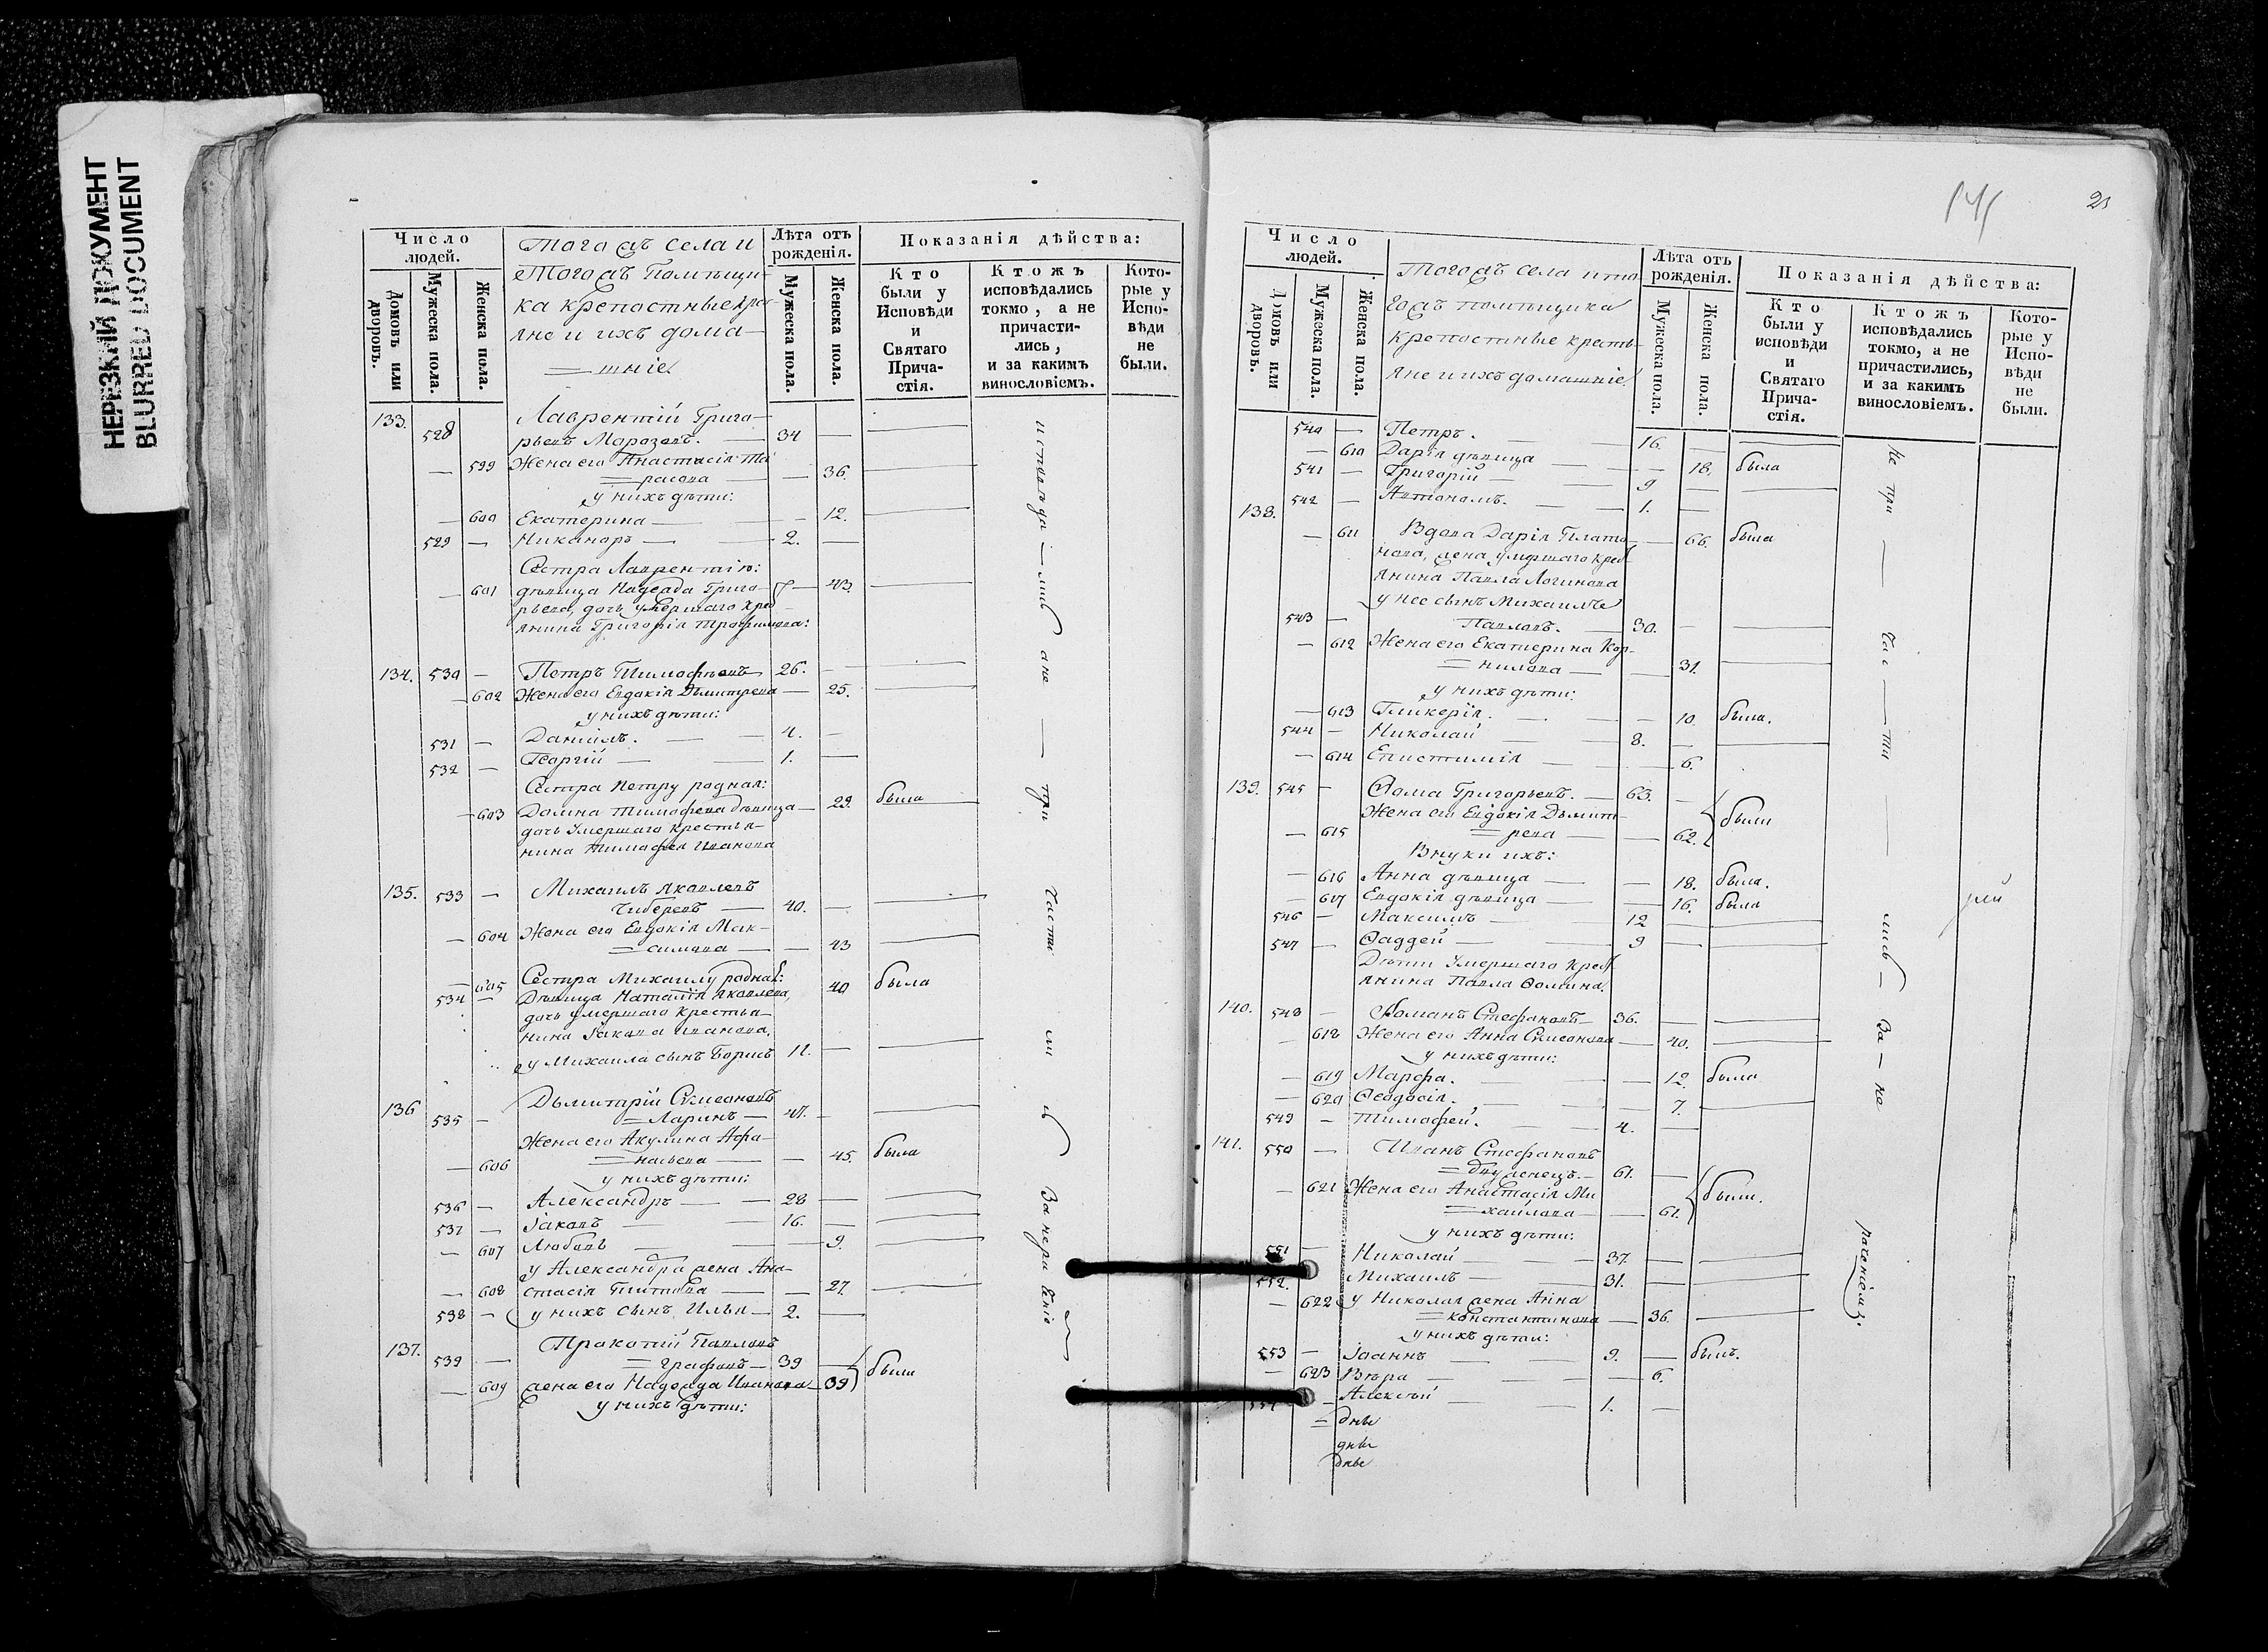 НЕРЕЗКИЙ ДОКУМЕНТ
BLURRED DOCUMENT
Число людей.
Домовъ или дворовъ.
Мужеска пола.
Женска пола.
Тогожъ села и
Тогожъ помѣщи-
ка крепостные кре-
яне и ихъ дома-
=шніе
Лѣта отъ рожденія.
Мужеска пола.
Женска пола.
Показанія дѣйства:
Кто были у Исповѣди и Святаго Причастія.
Ктожъ исповѣдались токмо, а не причастились, и за какимъ винословіемъ.
Которые у Исповѣди не были.
133. 528 Лаврентій Григо-
рьевъ Морозовъ. — 34 —
— 599 Жена его Анастасія Та-
=расова — — 36.
у нихъ дѣти:
— 600 Екатерина — — 12.
529 — Никаноръ — 2. —
Сестра Лаврентію:
— 601 дѣвица Надежда Григо- — 43.
рьева, дочь умершаго кре-
янина Григорія Трофимова:
134. 530 — Петръ Тимофѣевъ 26. —
— 602 Жена его Евдокія Дьмитрева — 25.
у нихъ дѣти:
531 — Даніилъ. — 4. —
532 — Георгій — 1. —
Сестра Петру родная:
— 603 Домна Тимофева дѣвица — 29. была
дочь умершаго крестья-
нина Тимофея Иванова
135. 533 — Михаилъ Яковлевъ
Чиберевъ — 40. —
— 604 Жена его Евдокія Мак-
=симова — — 43
Сестра Михаилу родная:
— 605 Дѣвица Наталія Яковлева, 40 была
534 — дочь умершаго крестья-
нина Іакова Иванова,
у Михаила сынъ Борисъ 11. —
136 Дьмитрій Сѵмеоновъ
535 — =Ларинъ — 47. —
Жена его Акулина Афа-
— 606 =насьева — — 45. была
у нихъ дѣти:
536 — Александръ — 28 —
537 — Іаковъ — 16. —
— 607 Любовь — 9.
у Александра жена Ана-
— 608 стасія Титова — — 27.
538 — у нихъ сынъ Илья — 2. —
137. Прокопій Павловъ
539 — =Графовъ — 39 — были
— 609 жена его Надежда Иванова — 39
у нихъ дѣти:
исповѣда — лись а не — при части ли сь За нераченіемъ
21
Число людей.
Домовъ или дворовъ.
Мужеска пола.
Женска пола.
Тогожъ села и то-
гожъ помѣщика
крепостные кресть-
яне и ихъ домашніе
Лѣта отъ рожденія.
Мужеска пола.
Женска пола.
Показанія дѣйства:
Кто были у исповѣди и Святаго Причастія.
Ктожъ исповѣдались токмо, а не причастились, и за какимъ винословіемъ.
Которые у Исповѣди не были.
540 — Петръ. — 16. —
— 610 Дарія дѣвица — — 18. была
541 — Григорій — 9 —
542 — Автономъ. — 1. —
138.
— 611 Вдова Дарія Плато- — 66. была
нова, жена умершаго крес-
янина Павла Логинова
у нее сынъ Михаилъ
543 — Павловъ. — 30. —
— 612 Жена его Екатерина Кор-
=нилова — — 31.
у нихъ дѣти:
— 613 Гликерія. — — 10. была.
544 — Николай — 8. —
— 614 Епистимія — — 6.
139. 545 — Ѳома Григорьевъ. — 63. —
Жена его Евдокія Дьмит-
— 615 =рева — — 62. были
Внуки ихъ:
— 616 Анна дѣвица — — 18. была.
— 617 Евдокія дѣвица — — 16. была
546 — Максимъ — 12 —
547 — Ѳаддей — 9 —
Дѣти умершаго крес-
янина Павла Ѳомина.
140. 548 — Романъ Стефановъ — 36. —
— 618 Жена его Анна Сѵмеонова — 40.
у нихъ дѣти:
— 619 Марфа. — — 12. была
— 620 Ѳеодосія. — — 7.
549 — Тимофей. — 4. —
141. 550 — Иванъ Стефановъ
=двуженецъ. — 61. —
— 621 Жена его Анастасія Ми-
=хайлова — — 61. были.
у нихъ дѣти:
551 — Николай — 37. —
552. Михаилъ — 31. —
— 622 у Николая жена Анна
=Константинова — 36.
у нихъ дѣти:
553 — Іоаннъ — 9. — былъ.
— 623 Вѣра — — 6.
554 — Алексѣй — 1. —
Не при — час — ти — лись — За — не раченіемъ.